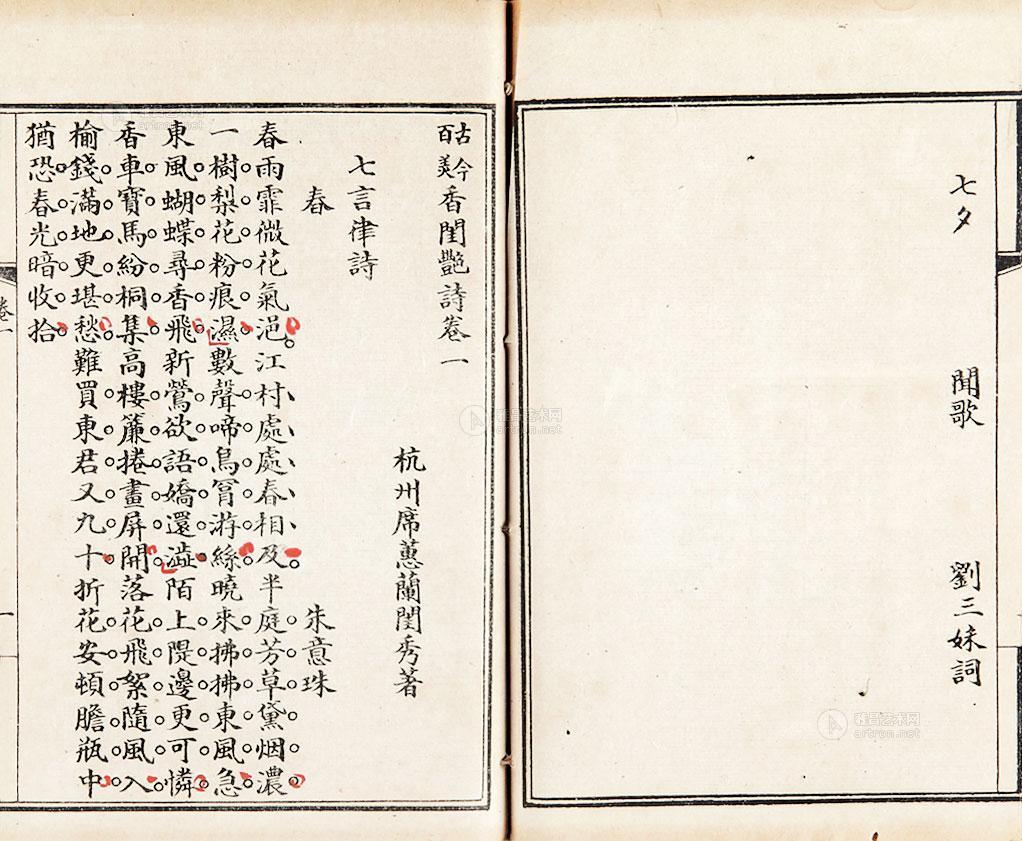 七夕　聞歌　劉三妹詞
古今百美香閨艷詩卷一
杭州席蕙蘭閨秀著
七言律詩
春　朱意珠
春雨霏微花氣浥江村處處春相及半庭芳草黛烟濃
一樹梨花粉痕濕數聲啼鳥罥游絲曉來拂拂東風急
東風蝴蝶尋香飛新鶯欲語嬌還澁陌上隄邊更可憐
香車寶馬紛桐集高樓簾捲畫屏開落花飛絮隨風入
榆錢滿地更堪愁難買東君又九十折花安頓膽瓶中
猶恐春光暗收拾
卷一
一
雅昌艺术网
artron.net